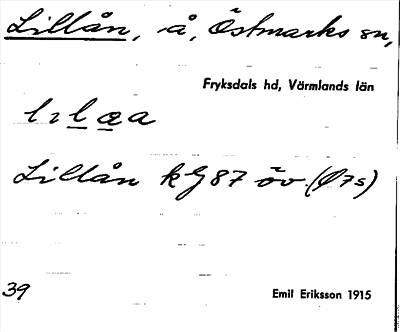 Lillån, å, Östmarks sn,
Fryksdals hd, Värmlands län
Lillån kG87 öv. (Ø7s)
39
Emil Eriksson 1915